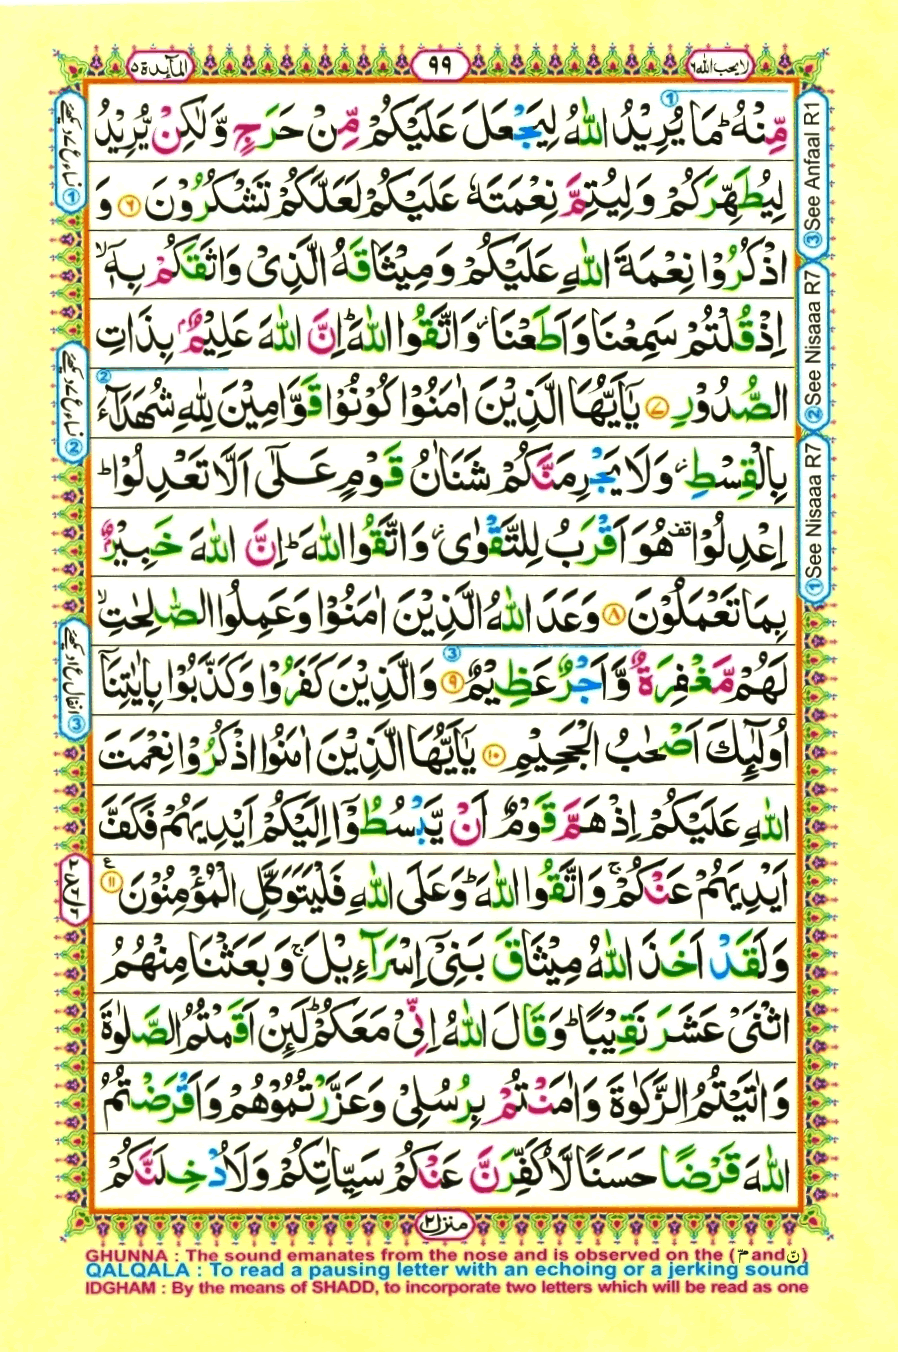 المآىِٕدة ٥
٩٩
لا یحب اللہ ٦
مِّنْهُ ؕ مَا یُرِیْدُ اللّٰهُ لِیَجْعَلَ عَلَیْكُمْ مِّنْ حَرَجٍ وَّ لٰكِنْ یُّرِیْدُ
لِیُطَهِّرَكُمْ وَ لِیُتِمَّ نِعْمَتَهٗ عَلَیْكُمْ لَعَلَّكُمْ تَشْكُرُوْنَ ﴿٦﴾ وَ
اذْكُرُوْا نِعْمَةَ اللّٰهِ عَلَیْكُمْ وَ مِیْثَاقَهُ الَّذِیْ وَاثَقَكُمْ بِهٖۤ ۙ
اِذْ قُلْتُمْ سَمِعْنَا وَ اَطَعْنَا ؗ وَ اتَّقُوا اللّٰهَ ؕ اِنَّ اللّٰهَ عَلِیْمٌۢ بِذَاتِ
الصُّدُوْرِ ﴿٧﴾ یٰۤاَیُّهَا الَّذِیْنَ اٰمَنُوْا كُوْنُوْا قَوّٰمِیْنَ لِلّٰهِ شُهَدَآءَ
بِالْقِسْطِ ؗ وَ لَا یَجْرِمَنَّكُمْ شَنَاٰنُ قَوْمٍ عَلٰۤى اَلَّا تَعْدِلُوْا ؕ
اِعْدِلُوْا ۫ هُوَ اَقْرَبُ لِلتَّقْوٰى ؗ وَ اتَّقُوا اللّٰهَ ؕ اِنَّ اللّٰهَ خَبِیْرٌۢ
بِمَا تَعْمَلُوْنَ ﴿٨﴾ وَعَدَ اللّٰهُ الَّذِیْنَ اٰمَنُوْا وَ عَمِلُوا الصّٰلِحٰتِ ۙ
لَهُمْ مَّغْفِرَةٌ وَّ اَجْرٌ عَظِیْمٌ ﴿٩﴾ وَ الَّذِیْنَ كَفَرُوْا وَ كَذَّبُوْا بِاٰیٰتِنَاۤ
اُولٰٓىِٕكَ اَصْحٰبُ الْجَحِیْمِ ﴿١٠﴾ یٰۤاَیُّهَا الَّذِیْنَ اٰمَنُوا اذْكُرُوْا نِعْمَتَ
اللّٰهِ عَلَیْكُمْ اِذْ هَمَّ قَوْمٌ اَنْ یَّبْسُطُوْۤا اِلَیْكُمْ اَیْدِیَهُمْ فَكَفَّ
اَیْدِیَهُمْ عَنْكُمْ ۚ وَ اتَّقُوا اللّٰهَ ؕ وَ عَلَى اللّٰهِ فَلْیَتَوَكَّلِ الْمُؤْمِنُوْنَ ﴿١١﴾
وَ لَقَدْ اَخَذَ اللّٰهُ مِیْثَاقَ بَنِیْۤ اِسْرَآءِیْلَ ۚ وَ بَعَثْنَا مِنْهُمُ
اثْنَیْ عَشَرَ نَقِیْبًا ؕ وَ قَالَ اللّٰهُ اِنِّیْ مَعَكُمْ ؕ لَىِٕنْ اَقَمْتُمُ الصَّلٰوةَ
وَ اٰتَیْتُمُ الزَّكٰوةَ وَ اٰمَنْتُمْ بِرُسُلِیْ وَ عَزَّرْتُمُوْهُمْ وَ اَقْرَضْتُمُ
اللّٰهَ قَرْضًا حَسَنًا لَّاُكَفِّرَنَّ عَنْكُمْ سَیِّاٰتِكُمْ وَ لَاُدْخِلَنَّكُمْ
③ See Anfaal R1
② See Nisaaa R7
① See Nisaaa R7
منزل ٢
GHUNNA : The sound emanates from the nose and is observed on the (مّ and نّ)
QALQALA : To read a pausing letter with an echoing or a jerking sound
IDGHAM : By the means of SHADD, to incorporate two letters which will be read as one